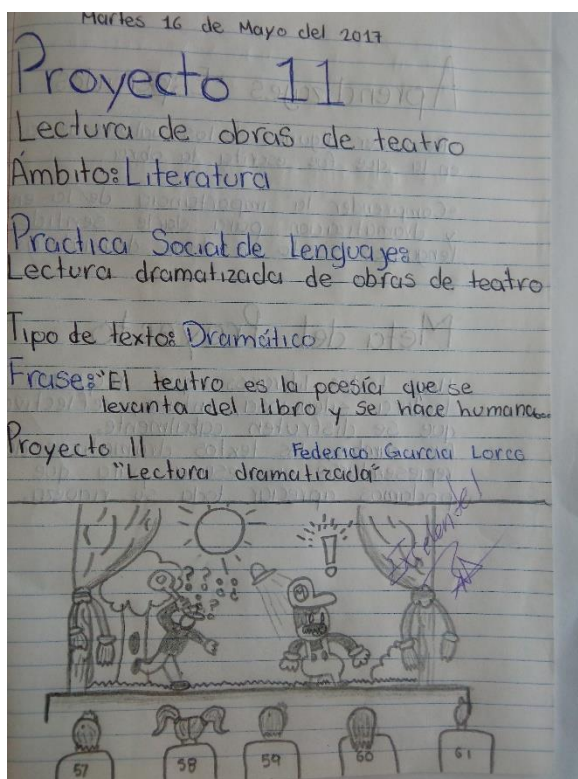 Martes 16 de Mayo del 2017
Proyecto 11
Lectura de obras de teatro
Ámbito: Literatura
Practica Social de Lenguajes:
Lectura dramatizada de obras de teatro
Tipo de texto: Dramático
Frase: "El teatro es la poesía que se
levanta del libro y se hace humana...
Proyecto 11 Federico Garcia Lorca
"Lectura dramatizada"
Excelente!
? ? ? ?
? ?
!
M
57 58 59 60 61